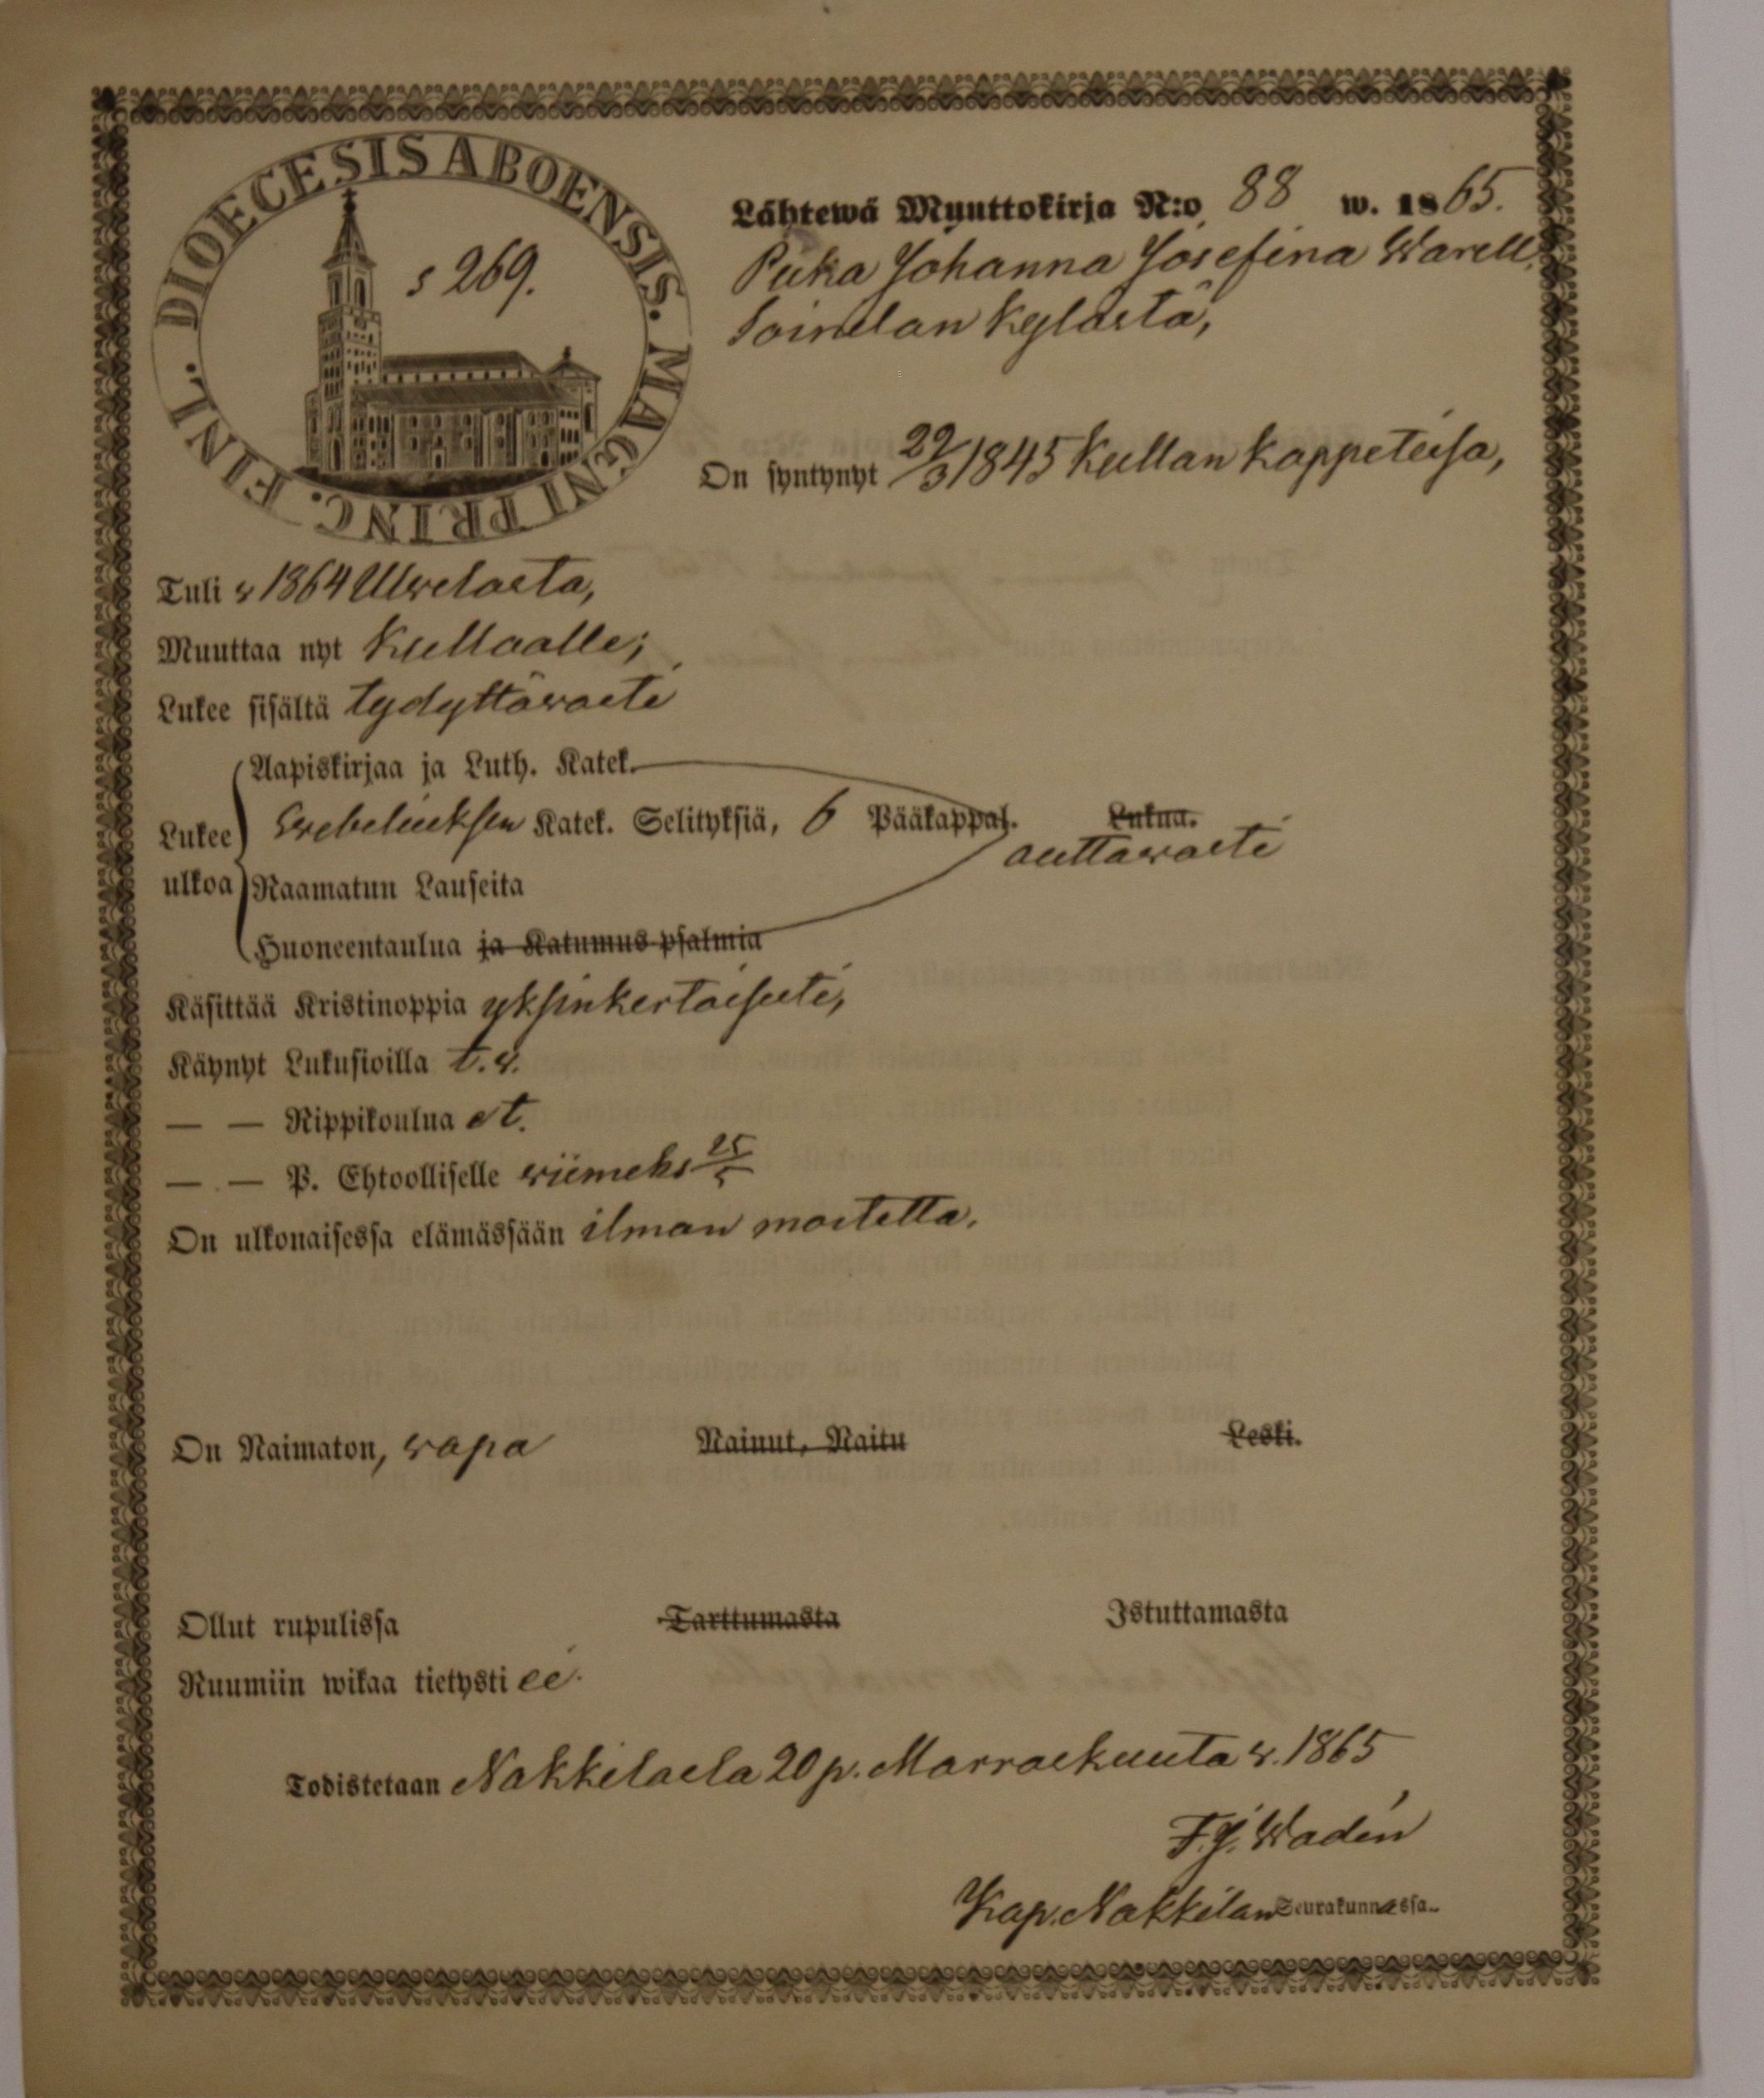 DIOECESIS ABOENSIS. MAGNI PRINC. FINL.
s 269.
Lähtewä Muuttokirja N:o 88 w. 1865.
Piika Johanna Josefina Warell,
Soinilan kylästä,
On syntynyt 22/3 1845 Kullan kappelisa,
Tuli w 1864 Ulwilasta,
Muuttaa nyt Kullaalle;
Lukee sisältä tydyttäwästi
Aapiskirjaa ja Luth. Katek.
Lukee ulkoa Swebeliuksen Katek. Selityksiä, 6 Pääkappal. Lukua.
auttawasti
Raamatun Lauseita
Huoneentaulua ja Katumus-psalmia
Käsittää Kristinoppia yksinkertaisesti,
Käynyt Lukusioilla t. w.
— — Rippikoulua et.
— — P. Ehtoolliselle wiimeks 25/5
On ulkonaisessa elämässään ilman moitetta.
On Naimaton, wapa Nainut, Naitu Leski.
Ollut rupulissa Tarttumasta Istuttamasta
Ruumiin wikaa tietysti ei.
Todistetaan Nakkilasla 20 p. Marraskuuta w. 1865
F. J. Wadén
Kap. Nakkilan Seurakunnassa.